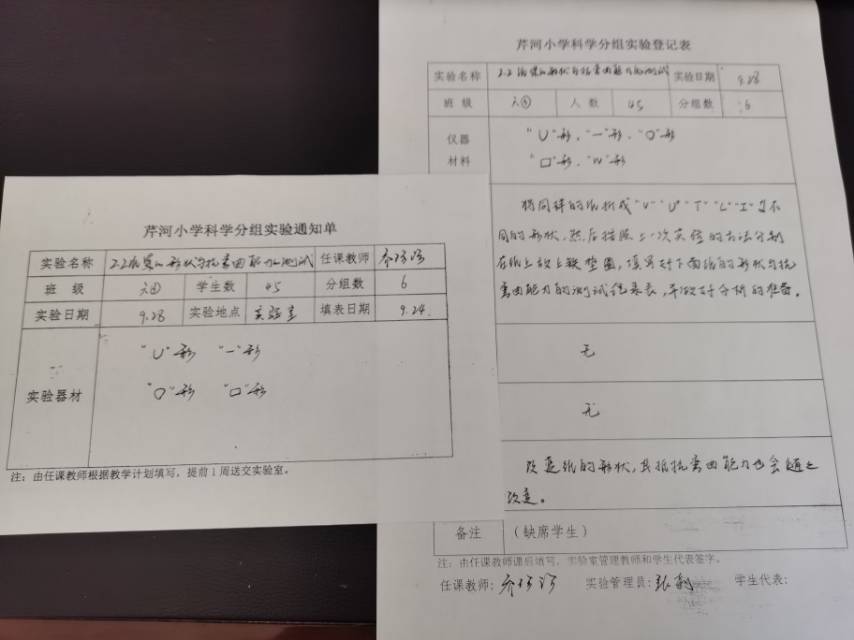 芹河小学科学分组实验通知单
实验名称 2.2纸梁的形状与抗弯曲能力的测试 任课教师
班 级 六④ 学生数 45 分组数 6
实验日期 9.28 实验地点 实验室 填表日期 9.24
实验器材
"U"形 "一"形
"O"形 "口"形
注：由任课教师根据教学计划填写，提前1周送交实验室。
芹河小学科学分组实验登记表
实验名称 2.2纸梁的形状与抗弯曲能力的测试 实验日期 9.28
班 级 六④ 人 数 45 分组数 6
仪器
材料
"U"形、"一"形、"O"形
"口"形、"W"形
将同样的纸折成"V""U""T""L""工"等不
同的形状，然后按照上一次实验的方法分别
在纸上放上铁垫圈，填写好下面纸的形状与抗
弯曲能力的测试记录表，并做好分析的准备。
无
无
改变纸的形状，其抵抗弯曲能力也会随之
改变。
备注 （缺席学生）
注：由任课教师课后填写，实验室管理教师和学生代表签字。
任课教师： 实验管理员：张 学生代表：